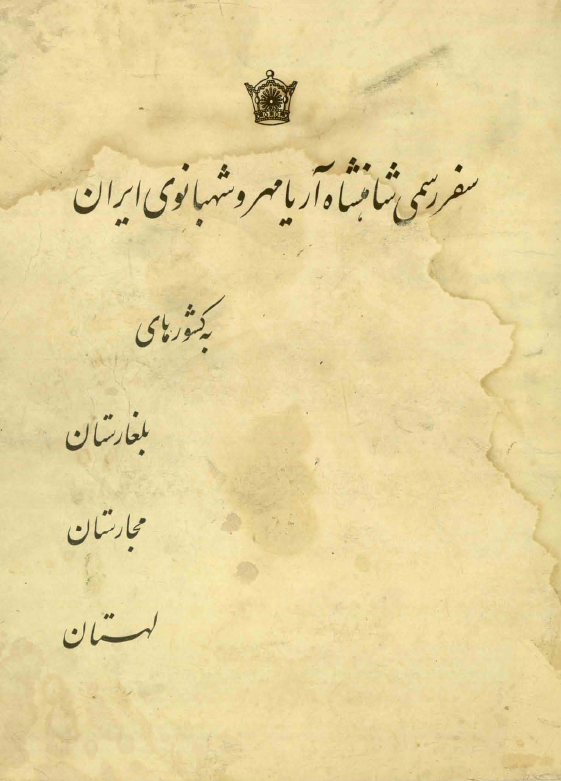 سفر رسمی شاهنشاه آریامهر و شهبانوی ایران
به کشورهای
بلغارستان
مجارستان
لهستان